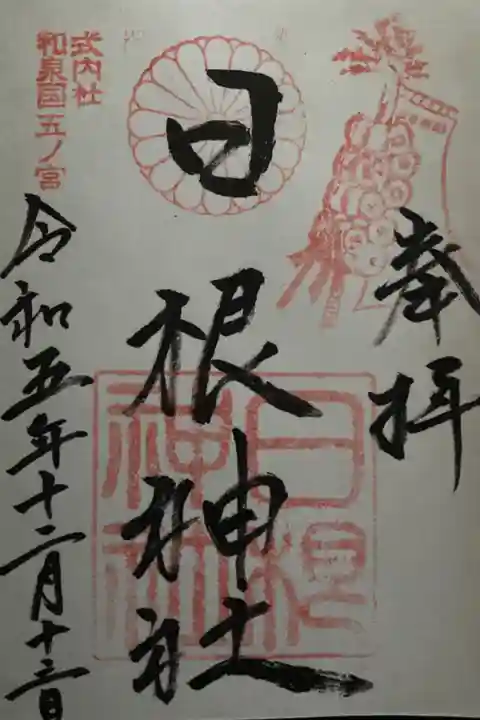 奉拝
日根神社
日根神社
式内社
和泉国五ノ宮
令和五年十二月十三日